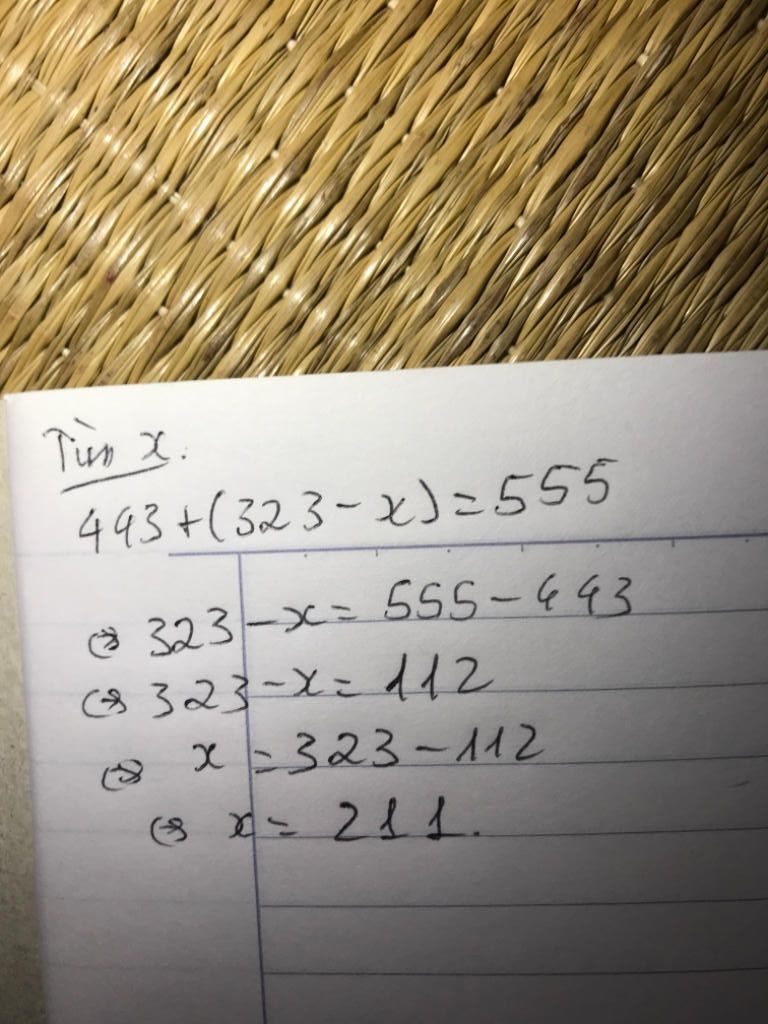 Tìm x.
493+(323-x)=555
⇔ 323-x=555-443
⇔ 323-x=112
⇔ x=323-112
⇔ x=211.